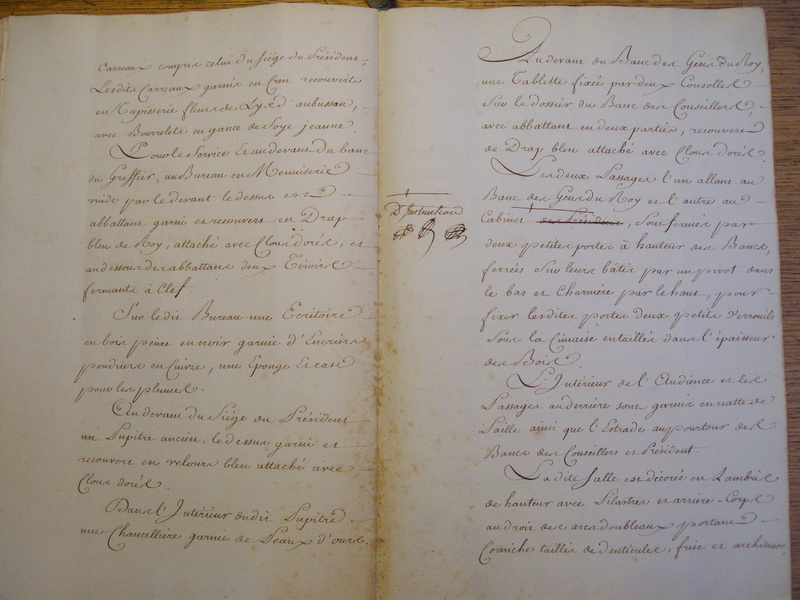 Carreaux compris celui du Siége du Président,
Lesdits Carreaux garnis en Crin recouverts
en Tapisserie fleurs de Lys d'aubusson,
avec Bourrelets en gance de Soye jeaune.
Pour le Service et au devant du banc
du Greffier, un Bureau en Menuiserie
vuide par le devant le dessus est
abbattant garni et recouvert en Drap
bleu de Roy, attaché avec Clous dorés, et
au dessous des abbattans deux Tiroirs
fermants à Clef.
Sur ledit Bureau une Ecritoire
en bois peint en noir garnie d'Encriers
poudriers en Cuivre, une Eponge et case
pour les plumes.
Au devant du Siége du Président
un Pupitre ancien, le dessus garni et
recouvert en velours bleu attaché avec
Clous dorés.
Dans l'Interieur dudit Pupitre
une Chancelliére garnie de Peaux d'ours.
Au devant du Banc des Gens du Roy,
une Tablette fixée par deux Consolles
Sur le dossier du Banc des Conseillers,
avec abbattant en deux parties, recouvert
de Drap bleu attaché avec Clous dorés.
Les deux Passages l'un allant au
Banc des Gens du Roy et l'autre au
D'Instruction
Cabinet des Présidens, Sont fermés par
deux petites portes à hauteur des Bancs,
ferrées Sur leurs bâtis par un pivot dans
le bas et Charniére par le haut, pour
fixer lesdites portes deux petits Verrouils
Sous la Cimaise entaillés dans l'épaisseur
des Bois.
L'Intérieur de l'Audience et les
Passages au derriére sont garnis en natte de
Paille ainsi que l'Estrade au pourtour des
Bancs des Conseillers et Président.
La dite Salle est décorée en Lambris
de hauteur avec Pilastres et arriere-Corps
au droit des arcs doubleaux portant
Corniche taillée de denticules, frise et architrave,